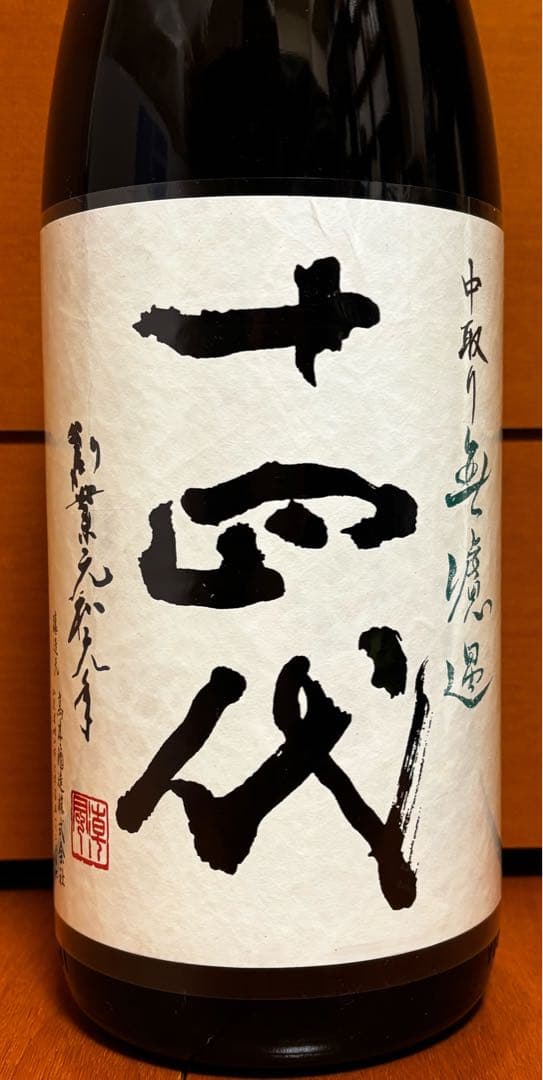 中取り無濾過
十四代
創業元和元年
醸造元 高木酒造株式会社